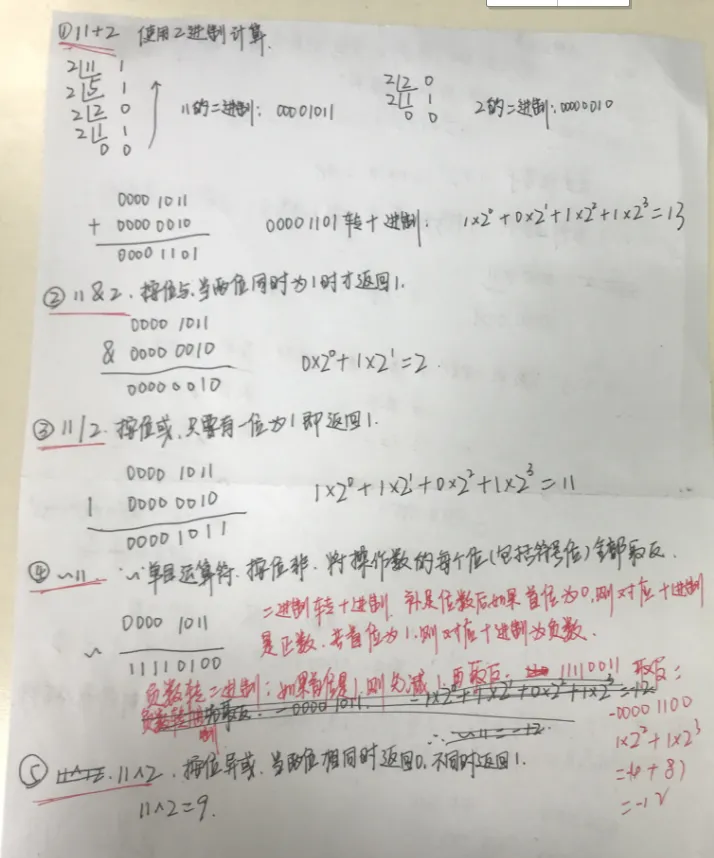 ①11+2 使用2进制计算.
2 11 1
2 5 1
2 2 0
2 1 1
0 0
11的二进制: 00001011
2 2 0
2 1 1
0 0
2的二进制: 00000010
0000 1011
+ 0000 0010
0000 1101
00001101转十进制: 1×2⁰+0×2¹+1×2²+1×2³=13
② 11 & 2. 按位与,当两位同时为1时才返回1.
0000 1011
& 0000 0010
0000 0010
0×2⁰+1×2¹=2.
③ 11/2. 按位或,只要有一位为1即返回1.
0000 1011
| 0000 0010
0000 1011
1×2⁰+1×2¹+0×2²+1×2³=11
④ ~11 ~单目运算符. 按位非. 将操作数的每个位(包括符号位)全部取反.
0000 1011
~
11110100
二进制转十进制. 补足位数后,如果首位为0,则对应十进制
是正数. 若首位为1,则对应十进制为负数.
负数转二进制: 如果首位是1,则先减1,再取反. 11110011 取反:
-00001100
1×2²+1×2³
=-12
⑤ 11^2. 按位异或. 当两位相同时返回0,不同时返回1.
11^2=9.